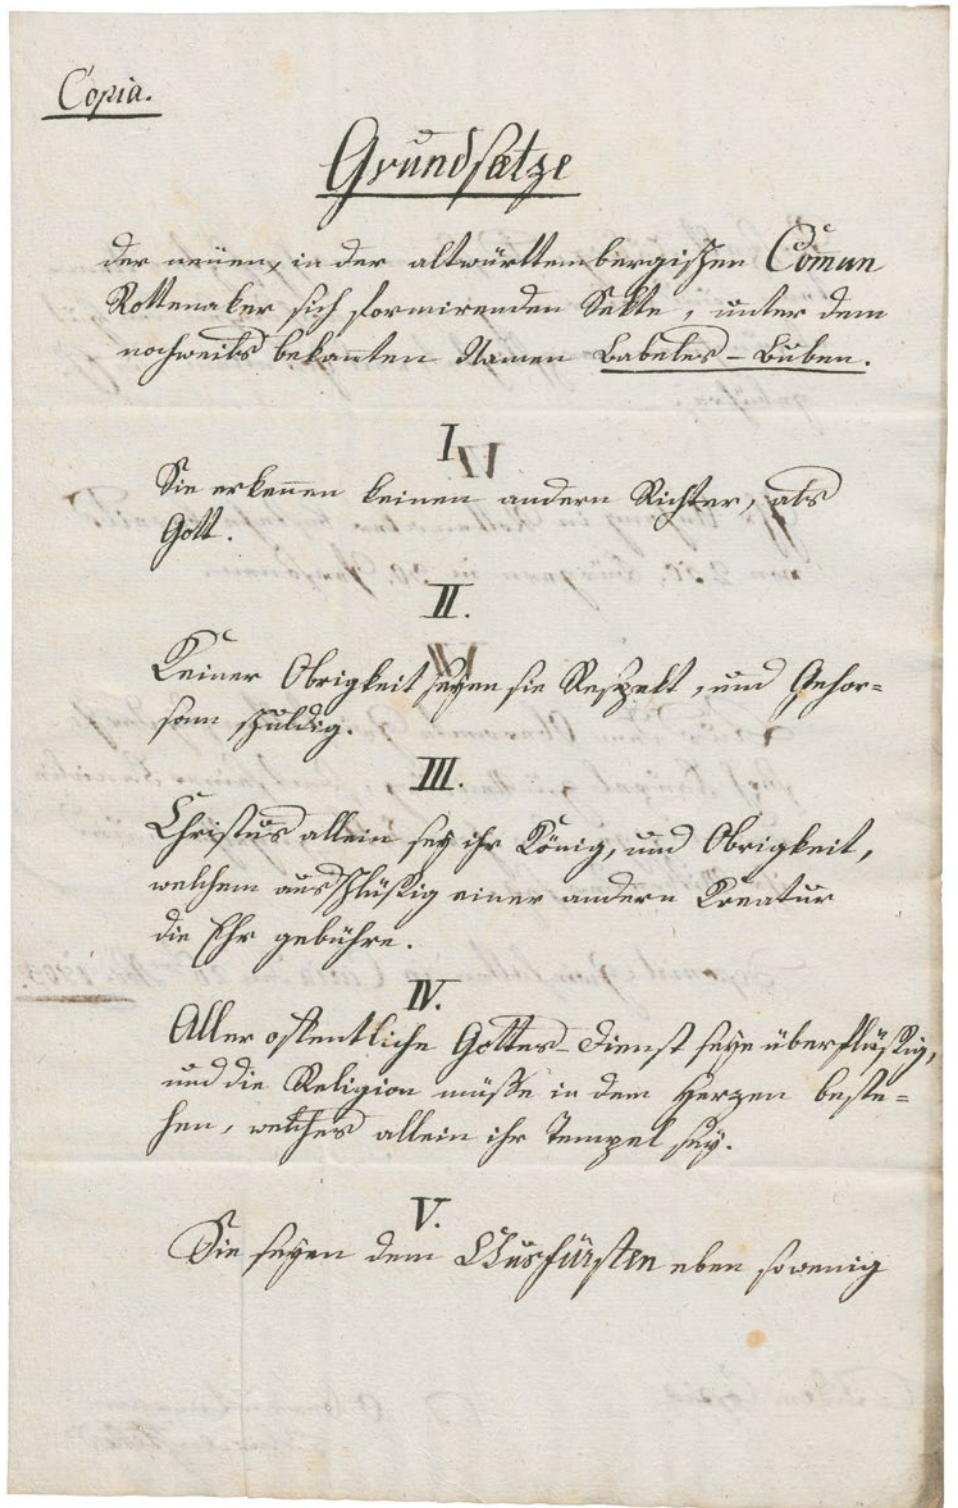 Copia.
Grundsätze
der neüen, in der altwürttembergischen Comun
Rottenaker sich formirenden Sekte, unter dem
nochweits bekannten Namen Babeles-Buben.
I
Sie erkennen keinen andern Richter, als
Gott.
II.
Keiner Obrigkeit seyen sie Respekt, und Gehor=
sam schuldig.
III.
Christus allein sey ihr König, und Obrigkeit,
welchem ausschlüßig einer andern Kreatur
die Ehr gebühre.
IV.
Aller offentliche Gottes-Dienst seye überflüßig,
und die Religion müsse in dem Herzen beste=
hen, welches allein ihr Tempel sey.
V.
Sie seyen dem Churfürsten eben so wenig